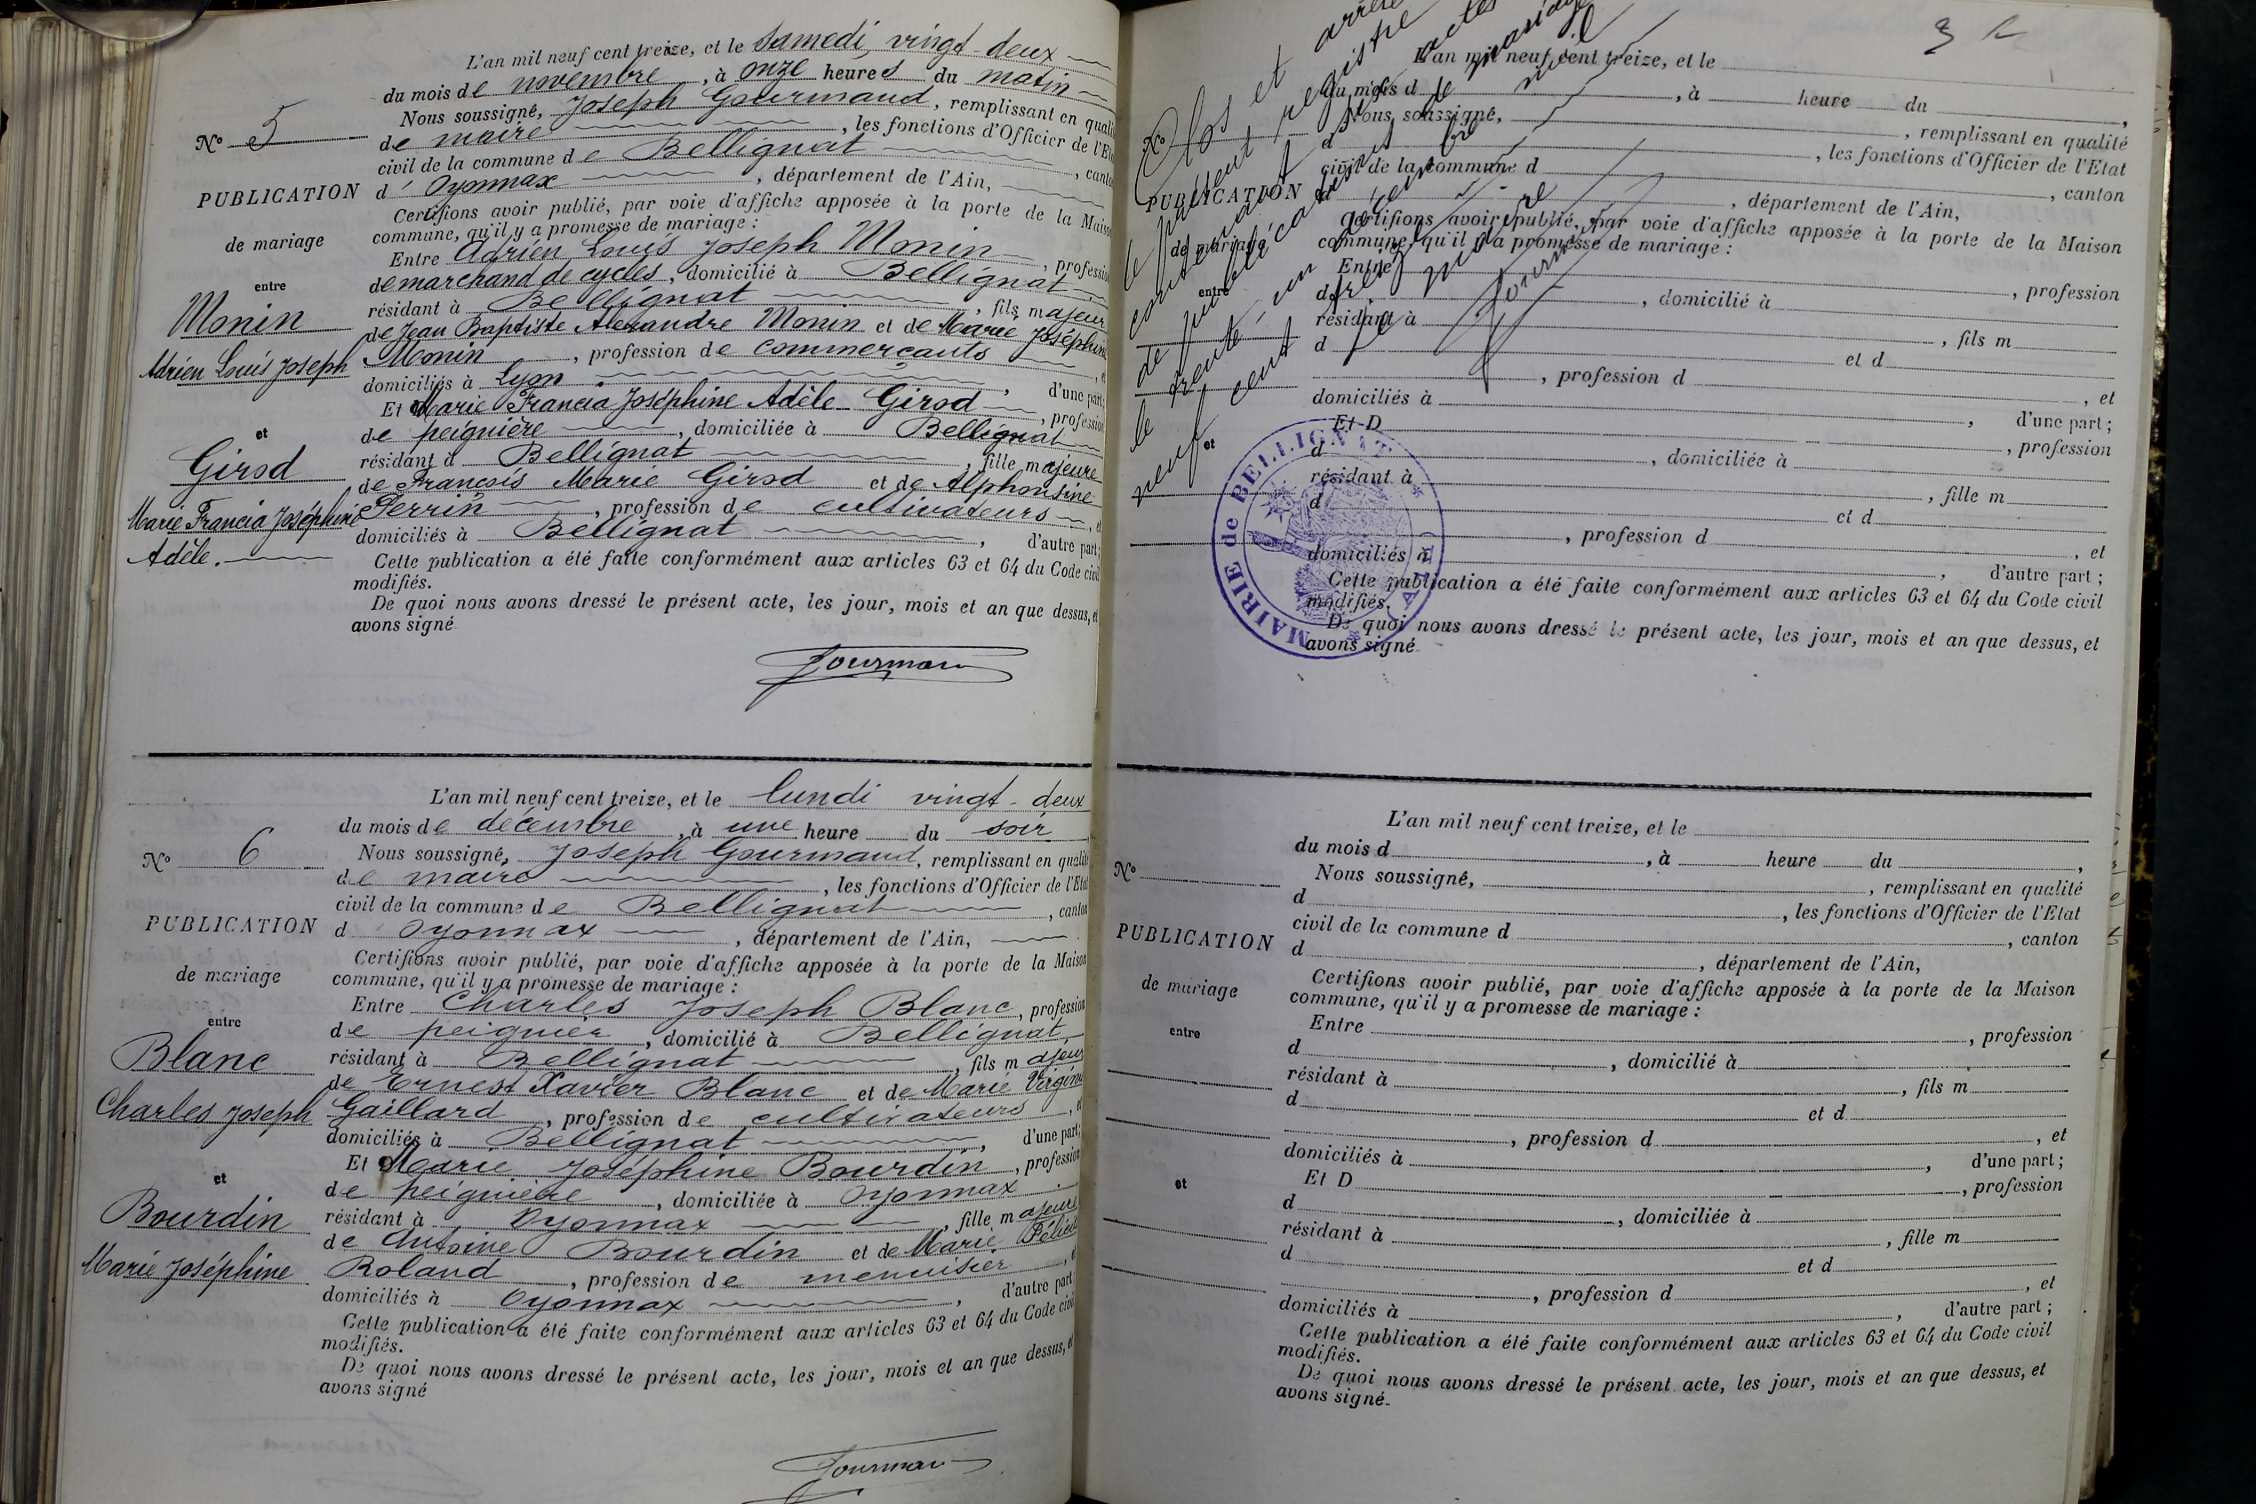 L'an mil neuf cent treize, et le samedi vingt-deux
du mois de novembre, à onze heures du matin
Nous soussigné, Joseph Gourmand, remplissant en qualité
de maire, les fonctions d'Officier de l'Etat
civil de la commune de Bellignat, canton
d'Oyonnax, département de l'Ain,
Certifions avoir publié, par voie d'affiche apposée à la porte de la Maison
commune, qu'il y a promesse de mariage :
Entre Adrien Louis Joseph Monin, profession
de marchand de cycles, domicilié à Bellignat
résidant à Bellignat, fils majeur
de Jean Baptiste Alexandre Monin et de Marie Joséphine
Monin, profession de commerçants, et
domiciliés à Lyon, d'une part;
Et Marie Francia Joséphine Adèle Girod, profession
de peignière, domiciliée à Bellignat
résidant à Bellignat, fille majeure
de François Marie Girod et de Alphonsine
Perrin, profession de cultivateurs, et
domiciliés à Bellignat, d'autre part;
Cette publication a été faite conformément aux articles 63 et 64 du Code civil
modifiés.
De quoi nous avons dressé le présent acte, les jour, mois et an que dessus, et
avons signé
Gourmand
N° 5
PUBLICATION
de mariage
entre
Monin
Adrien Louis Joseph
et
Girod
Marie Francia Joséphine
Adèle.
L'an mil neuf cent treize, et le lundi vingt-deux
du mois de décembre, à une heure du soir
Nous soussigné, Joseph Gourmand, remplissant en qualité
de maire, les fonctions d'Officier de l'Etat
civil de la commune de Bellignat, canton
d'Oyonnax, département de l'Ain,
Certifions avoir publié, par voie d'affiche apposée à la porte de la Maison
commune, qu'il y a promesse de mariage :
Entre Charles Joseph Blanc, profession
de peignier, domicilié à Bellignat,
résidant à Bellignat, fils majeur
de Ernest Xavier Blanc et de Marie Virginie
Gaillard, profession de cultivateurs, et
domiciliés à Bellignat, d'une part;
Et Marie Joséphine Bourdin, profession
de peignière, domiciliée à Oyonnax
résidant à Oyonnax, fille majeure
de Antoine Bourdin et de Marie Félicie
Roland, profession de menuisier, et
domiciliés à Oyonnax, d'autre part
Cette publication a été faite conformément aux articles 63 et 64 du Code civil
modifiés.
De quoi nous avons dressé le présent acte, les jour, mois et an que dessus, et
avons signé
Gourmand
N° 6
PUBLICATION
de mariage
entre
Blanc
Charles Joseph
et
Bourdin
Marie Joséphine
L'an mil neuf cent treize, et le
du mois d , à heure du ,
Nous soussigné, , remplissant en qualité
d , les fonctions d'Officier de l'Etat
civil de la commune d , canton
d , département de l'Ain,
Certifions avoir publié, par voie d'affiche apposée à la porte de la Maison
commune, qu'il y a promesse de mariage :
Entre , profession
d , domicilié à
résidant à , fils m
d et d
, profession d , et
domiciliés à , d'une part;
Et D , profession
d , domiciliée à
résidant à , fille m
d et d
, profession d , et
domiciliés à , d'autre part;
Cette publication a été faite conformément aux articles 63 et 64 du Code civil
modifiés.
De quoi nous avons dressé le présent acte, les jour, mois et an que dessus, et
avons signé
N°
PUBLICATION
de mariage
entre
et
Clos et arrêté
le présent registre
contenant six actes
de publications de mariage
le trente-un décembre mil
neuf cent treize
Le maire
Gourmand
MAIRIE de BELLIGNAT (AIN)
L'an mil neuf cent treize, et le
du mois d , à heure du ,
Nous soussigné, , remplissant en qualité
d , les fonctions d'Officier de l'Etat
civil de la commune d , canton
d , département de l'Ain,
Certifions avoir publié, par voie d'affiche apposée à la porte de la Maison
commune, qu'il y a promesse de mariage :
Entre , profession
d , domicilié à
résidant à , fils m
d et d
, profession d , et
domiciliés à , d'une part;
Et D , profession
d , domiciliée à
résidant à , fille m
d et d
, profession d , et
domiciliés à , d'autre part;
Cette publication a été faite conformément aux articles 63 et 64 du Code civil
modifiés.
De quoi nous avons dressé le présent acte, les jour, mois et an que dessus, et
avons signé.
N°
PUBLICATION
de mariage
entre
et